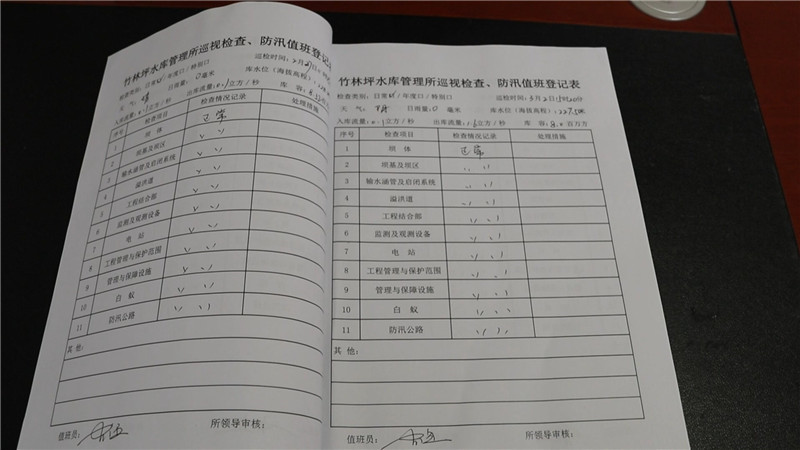 竹林坪水库管理所巡视检查、防汛值班登记表
检查类别：日常☑/年度口/特别口 巡检时间：
天 气：晴 日雨量：0毫米 库水位（海拔高程）：
入库流量：0.1立方/秒 出库流量：0.1立方/秒 库 容：
序号 检查项目 检查情况记录 处理措施
1 坝 体 正常
2 坝基及坝区 〃
3 输水涵管及启闭系统 〃
4 溢洪道 〃
5 工程结合部 〃
6 监测及观测设备 〃
7 电 站 〃
8 工程管理与保护范围 〃
9 管理与保障设施 〃
10 白 蚁 〃
11 防汛公路 〃
其 他：
值班员： 所领导审核：
竹林坪水库管理所巡视检查、防汛值班登记表
检查类别：日常☑/年度口/特别口 巡检时间：
天 气：晴 日雨量：0 毫米 库水位（海拔高程）：227.5米
入库流量：0.1立方/秒 出库流量： 立方/秒 库 容：8.0百万方
序号 检查项目 检查情况记录 处理措施
1 坝 体 正常
2 坝基及坝区 〃
3 输水涵管及启闭系统 〃
4 溢洪道 〃
5 工程结合部 〃
6 监测及观测设备 〃
7 电 站 〃
8 工程管理与保护范围 〃
9 管理与保障设施 〃
10 白 蚁 〃
11 防汛公路 〃
其 他：
值班员： 所领导审核：